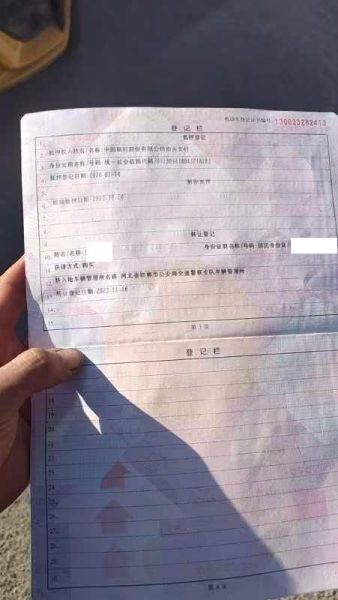 机动车登记证书编号:130023282413
登记栏
抵押登记
1.
2. 抵押权人姓名/名称:中国银行股份有限公司
3. 身份证明名称/号码:统一社会信用代码/
4. 抵押登记日期:2020-01-14
5. 解除抵押
6.
7. 解除抵押日期:2022-10-26
8.
9. 转让登记
10. 姓名/名称: 身份证明名称/号码:居民身份证/
11. 获得方式:购买
12. 转入地车辆管理所名称:河北省邯郸市公安局交通警察支队车辆管理所
13. 转让登记日期:2022-11-16
14.
15.
第3页
登记栏
18
19
20
21
22
23
24
25
26
27
28
29
30
第4页